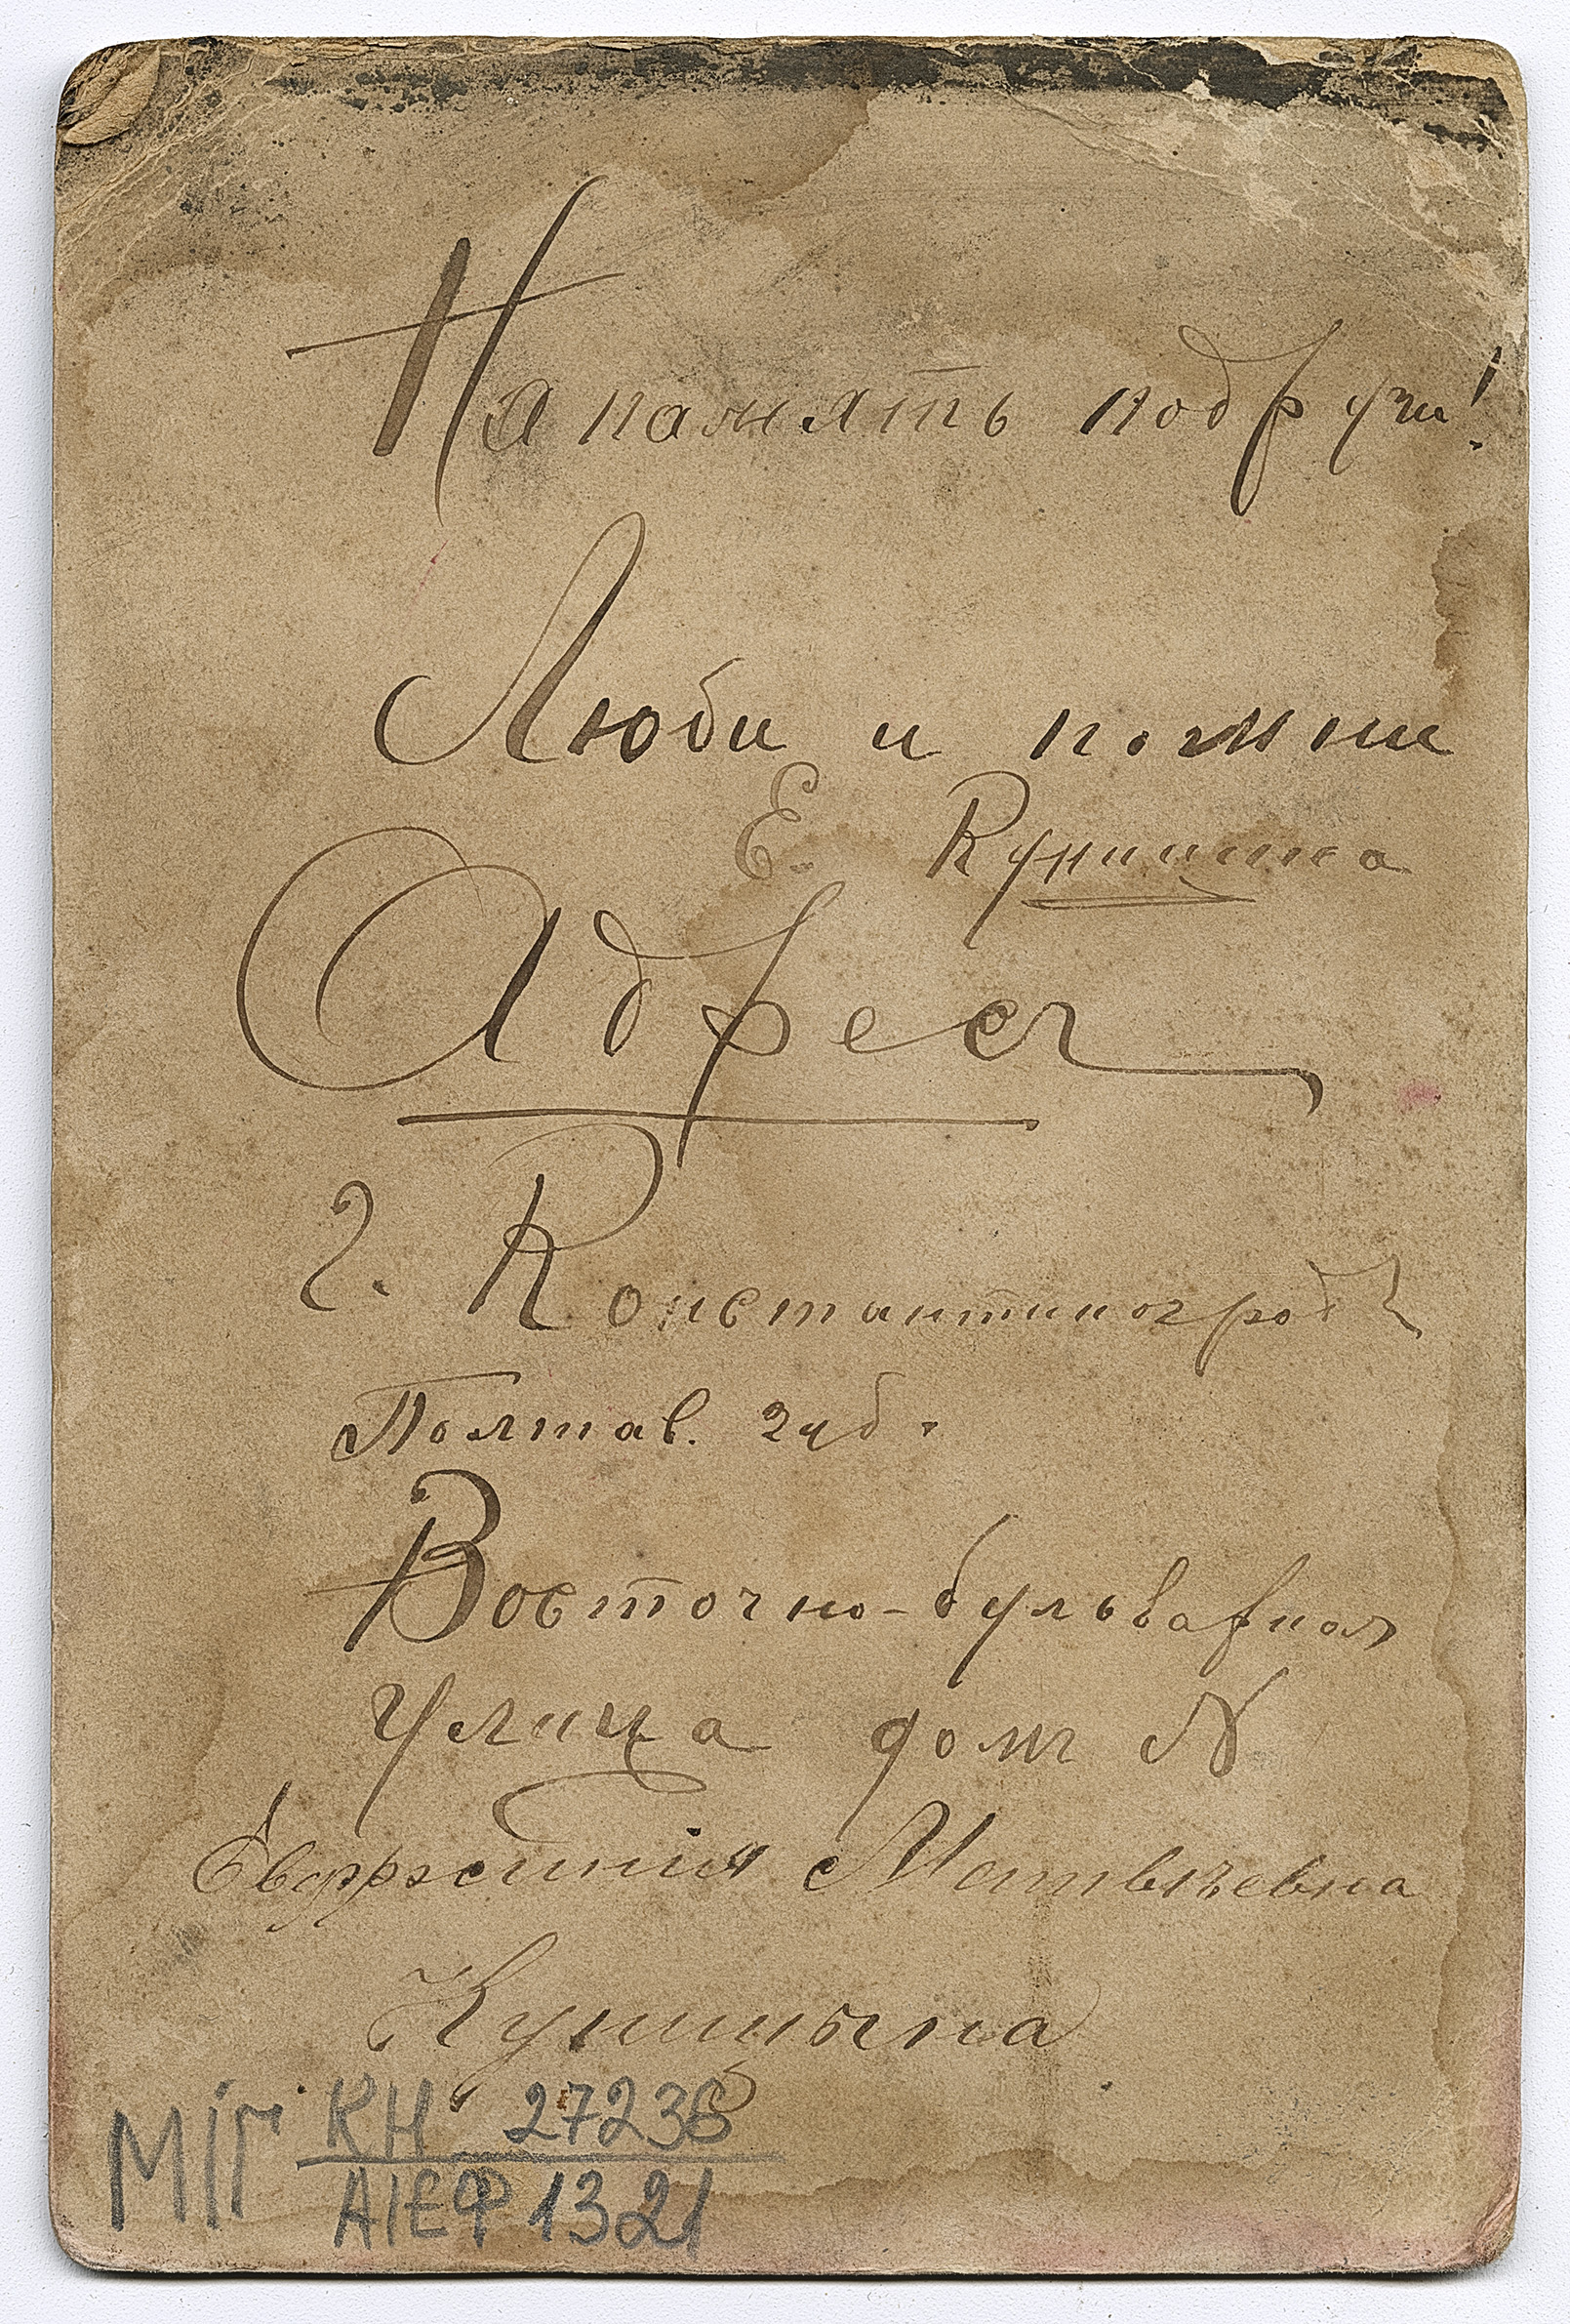 На память подруги!
Люби и помни
Е. Куницына
Адресъ
г. Константиноградъ
Полтав. губ.
Восточно-бульварная
улица домъ N
Евфросинія Матвѣевна
Куницына
МІГ КН 27236
АІЕФ 1321